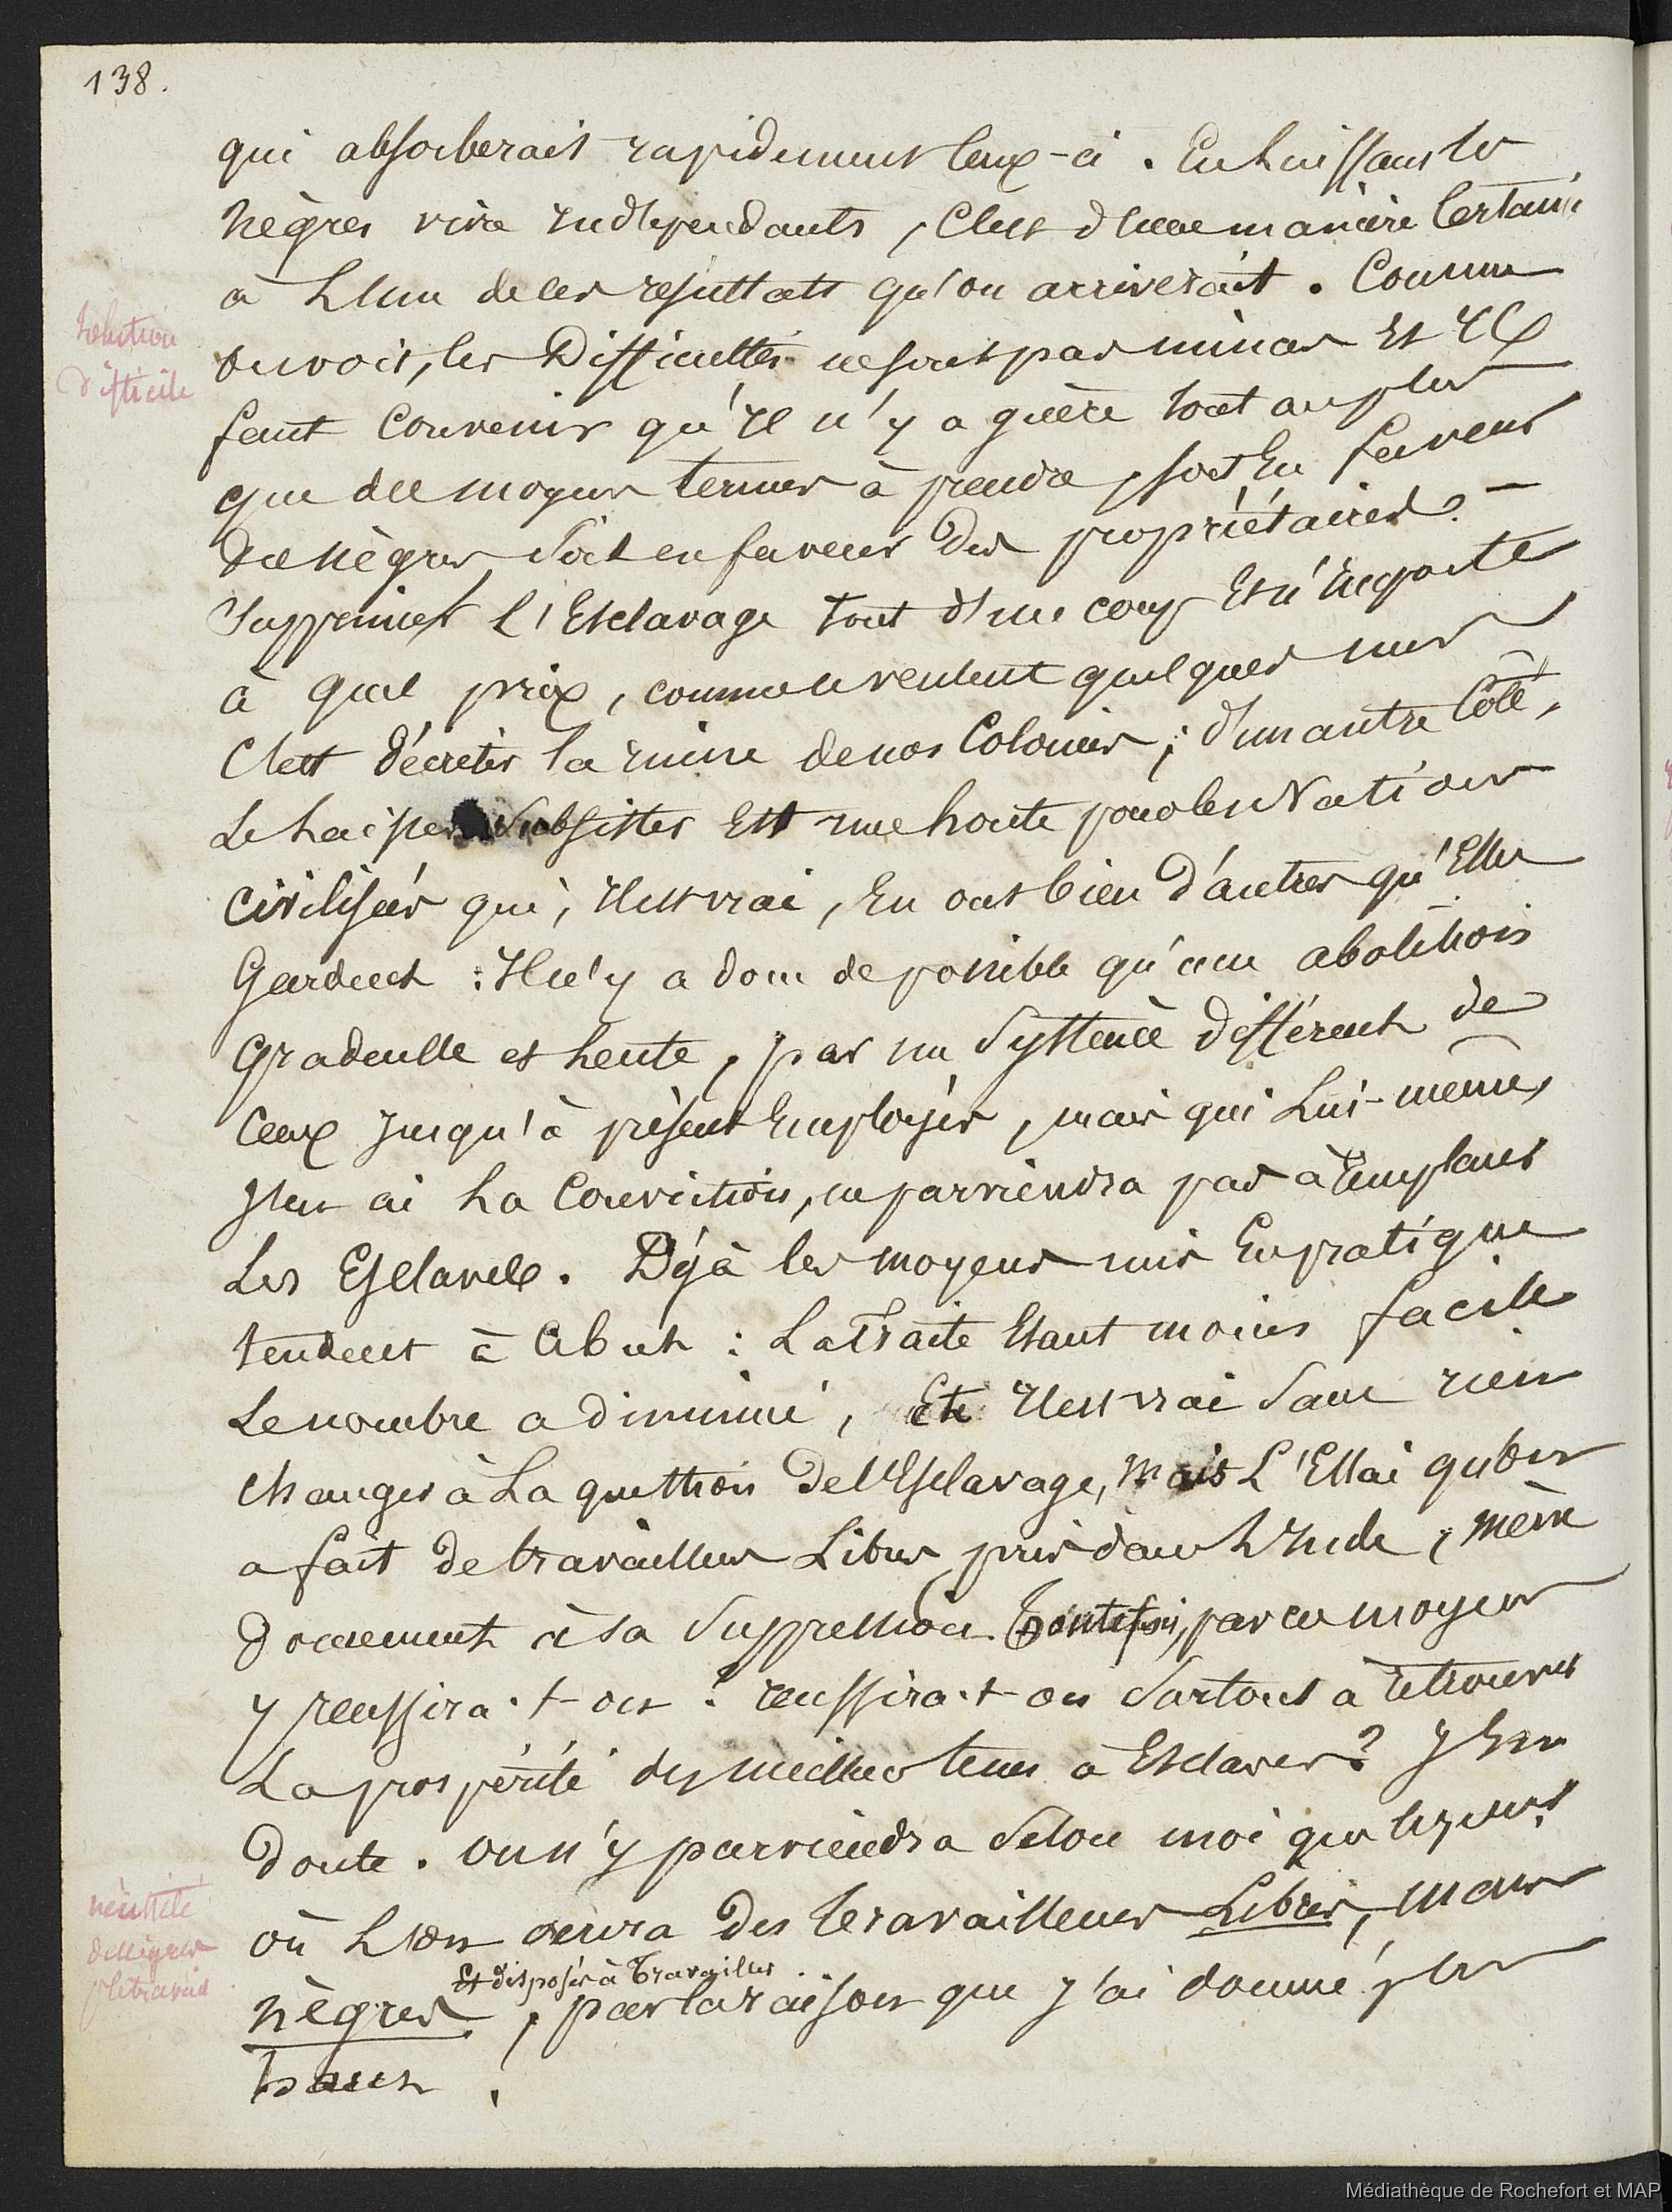 138.
qui absorberait rapidement ceux-ci. En laissant les
nègres vivre independants, c'est d'une manière certaine
à l'un de ces resultats qu'on arriverait. Comme
solution
difficile
on voit, les difficultés ne sont pas minces et il
faut convenir qu'il n'y a guère tout au plus
que des moyens termes à prendre, soit en faveur
des nègres soit en faveur des propriétaires. –
Supprimer l'Esclavage tout d'un coup et n'importe
à quel prix, comme le veulent quelques uns
c'est décréter la ruine de nos Colonies ; d'un autre côté,
Le laisser subsister est une honte pour les Nations
civilisées qui, il est vrai, en ont bien d'autres qu'elles
gardent : Il n'y a donc de possible qu'une abolition
graduelle et lente, par un système différent de
ceux jusqu'à présent employés, mais qui lui-même,
j'en ai la conviction, ne parviendra pas à remplacer
Les Esclaves. Déjà les moyens mis en pratique
tendent à ce but : La traite étant moins facile
Le nombre a diminué, et il est vrai sans rien
changer à la question de l'Esclavage, mais l'Essai qu'on
a fait de travailleurs Libres pris dans l'Inde, mène
doucement à sa suppression. Toutefois, par ce moyen
y reussira-t-on : reussira-t-on surtout à retrouver
La prospérité des meilleurs tems à Esclaves ? J'en
doute. On n'y parviendra selon moi que le jour
où l'on aura des travailleurs Libres, mais
nécessité
des nègres
pr le travail.
Et disposés à travailler
nègres, par la raison que j'ai donné plus
haut.
Médiathèque de Rochefort et MAP